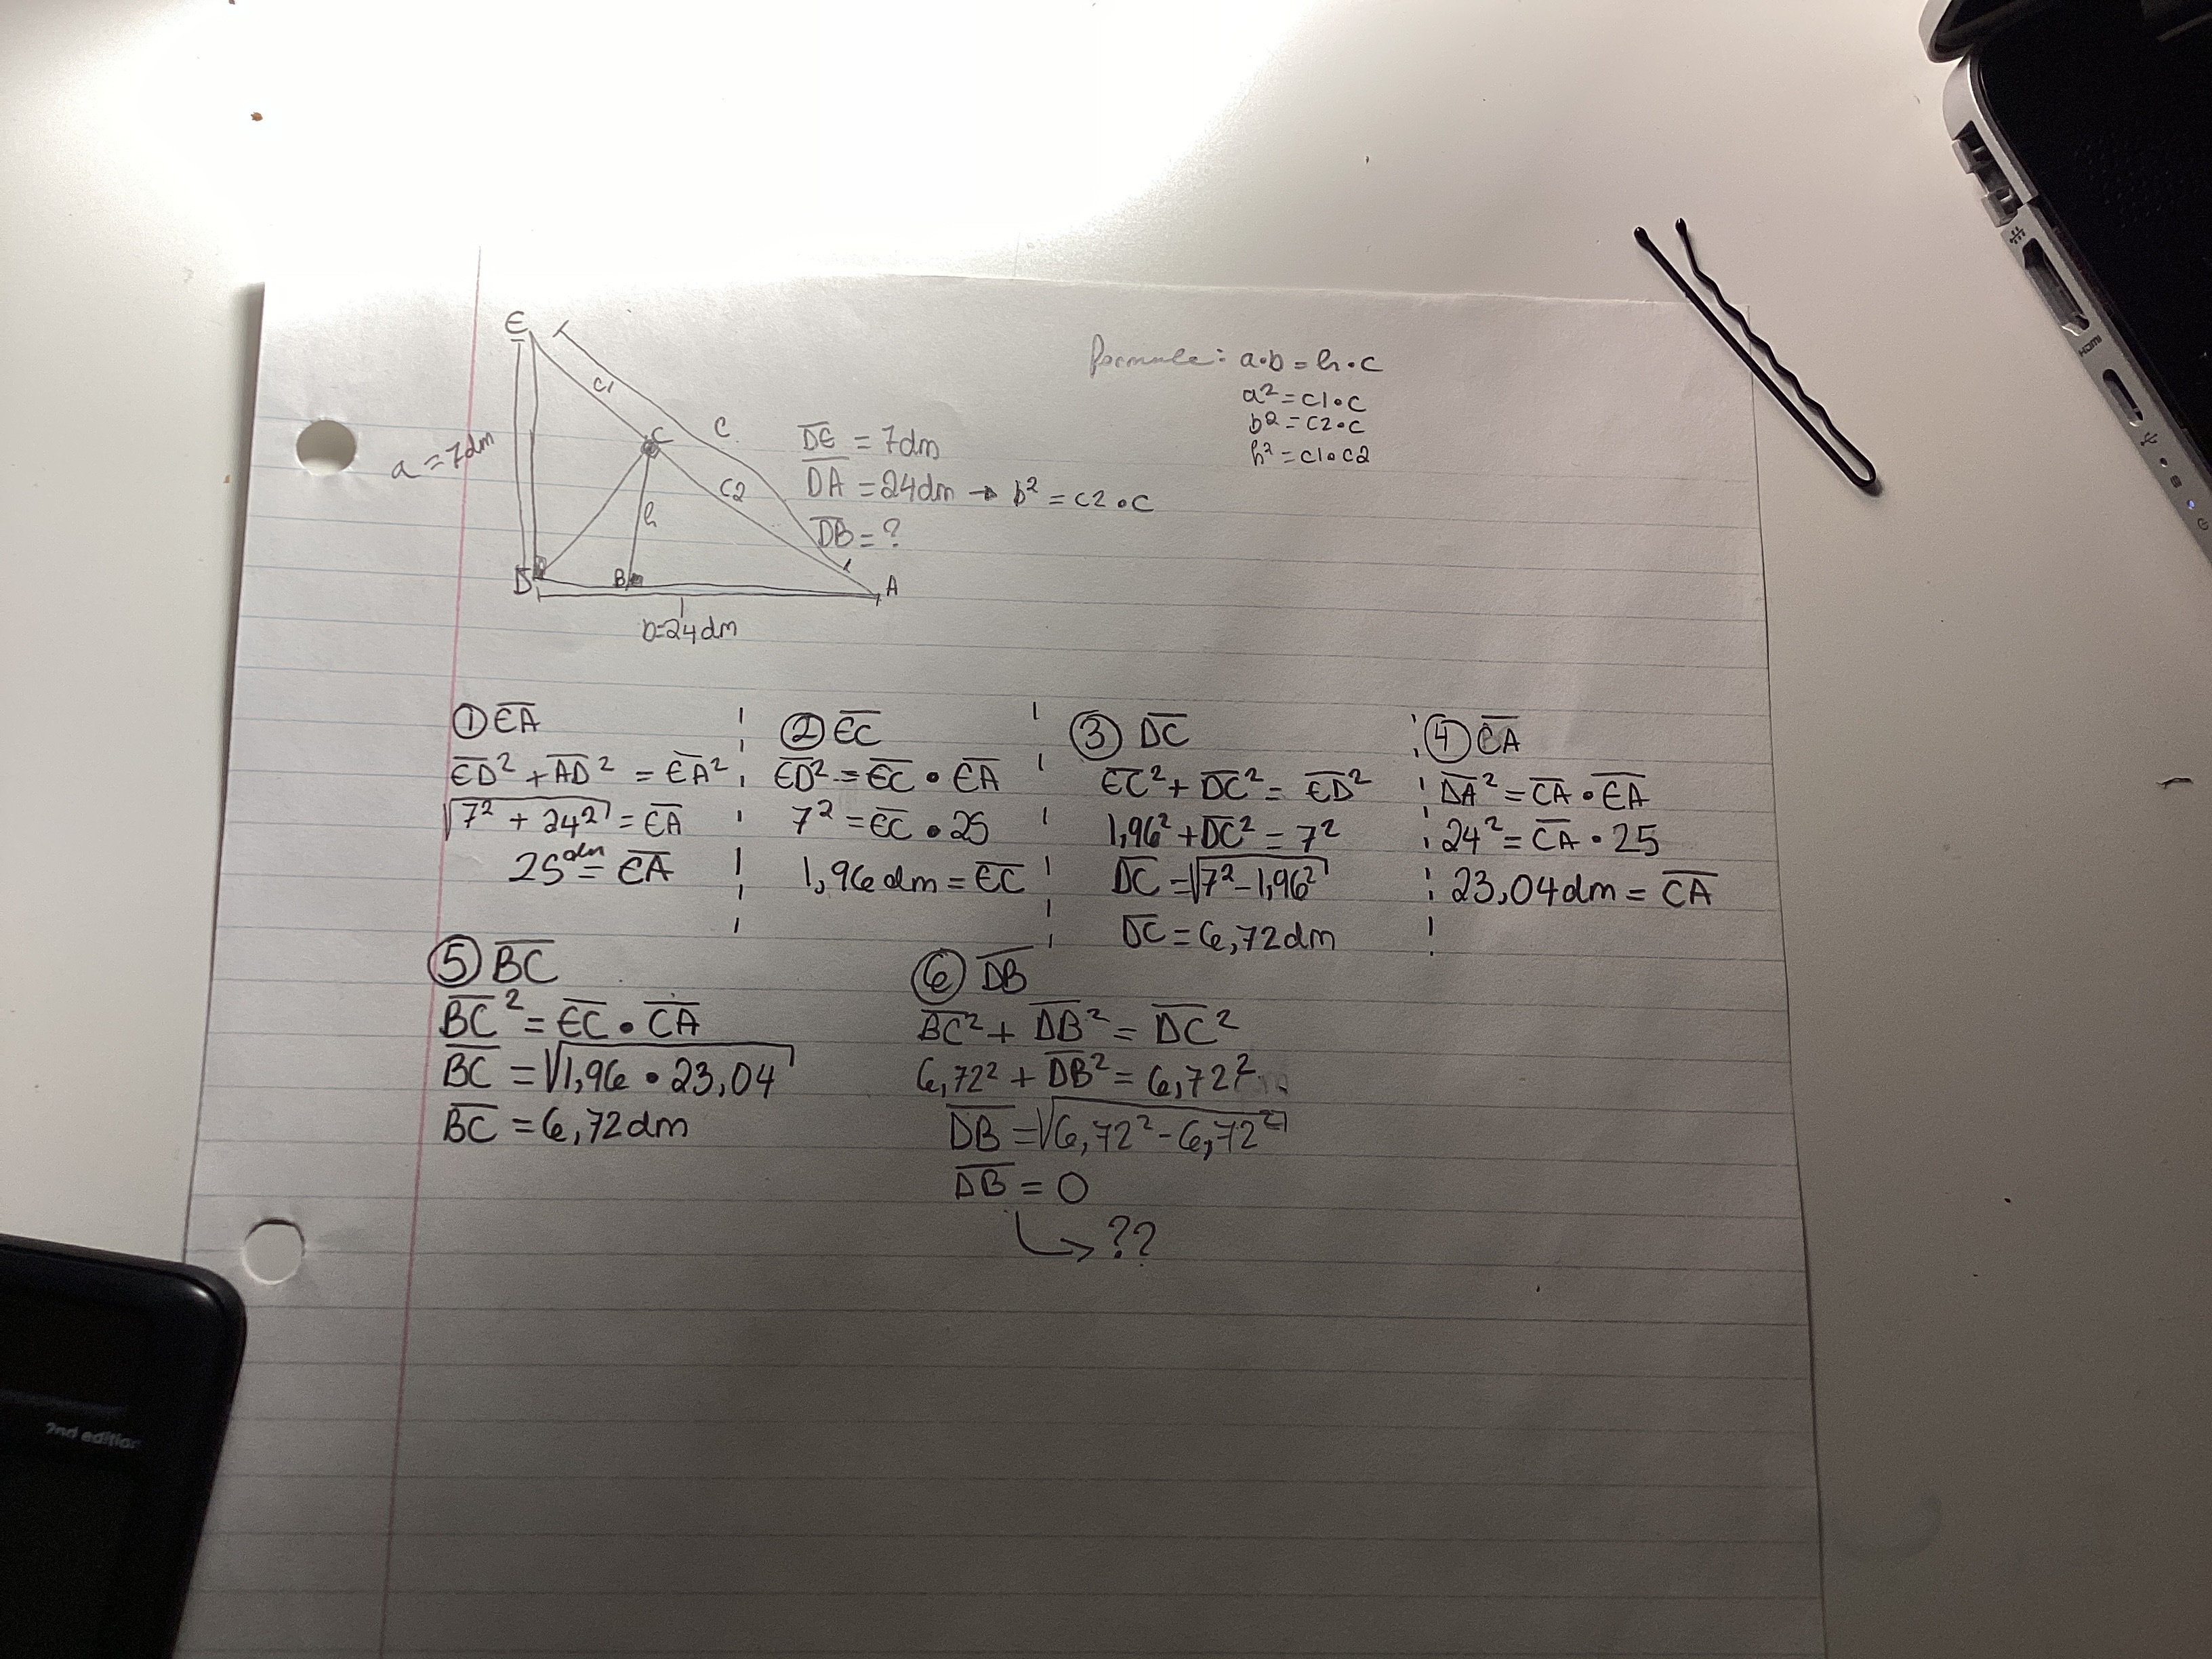 E
c1
C
c
a = 7dm
c2
h
D
B
A
b=24dm
DE = 7dm
DA = 24dm → b² = c2•c
DB = ?
Formule: a•b = h•c
a² = c1•c
b² = c2•c
h² = c1•c2
HDMI
① EA
ED² + AD² = EA²
√7² + 24² = EA
25dm = EA
② EC
ED² = EC • EA
7² = EC • 25
1,96dm = EC
③ DC
EC² + DC² = ED²
1,96² + DC² = 7²
DC = √7² - 1,96²
DC = 6,72dm
④ CA
DA² = CA • EA
24² = CA • 25
23,04dm = CA
⑤ BC
BC² = EC • CA
BC = √1,96 • 23,04
BC = 6,72dm
⑥ DB
BC² + DB² = DC²
6,72² + DB² = 6,72²
DB = √6,72² - 6,72²
DB = 0
↳ ??
2nd edition